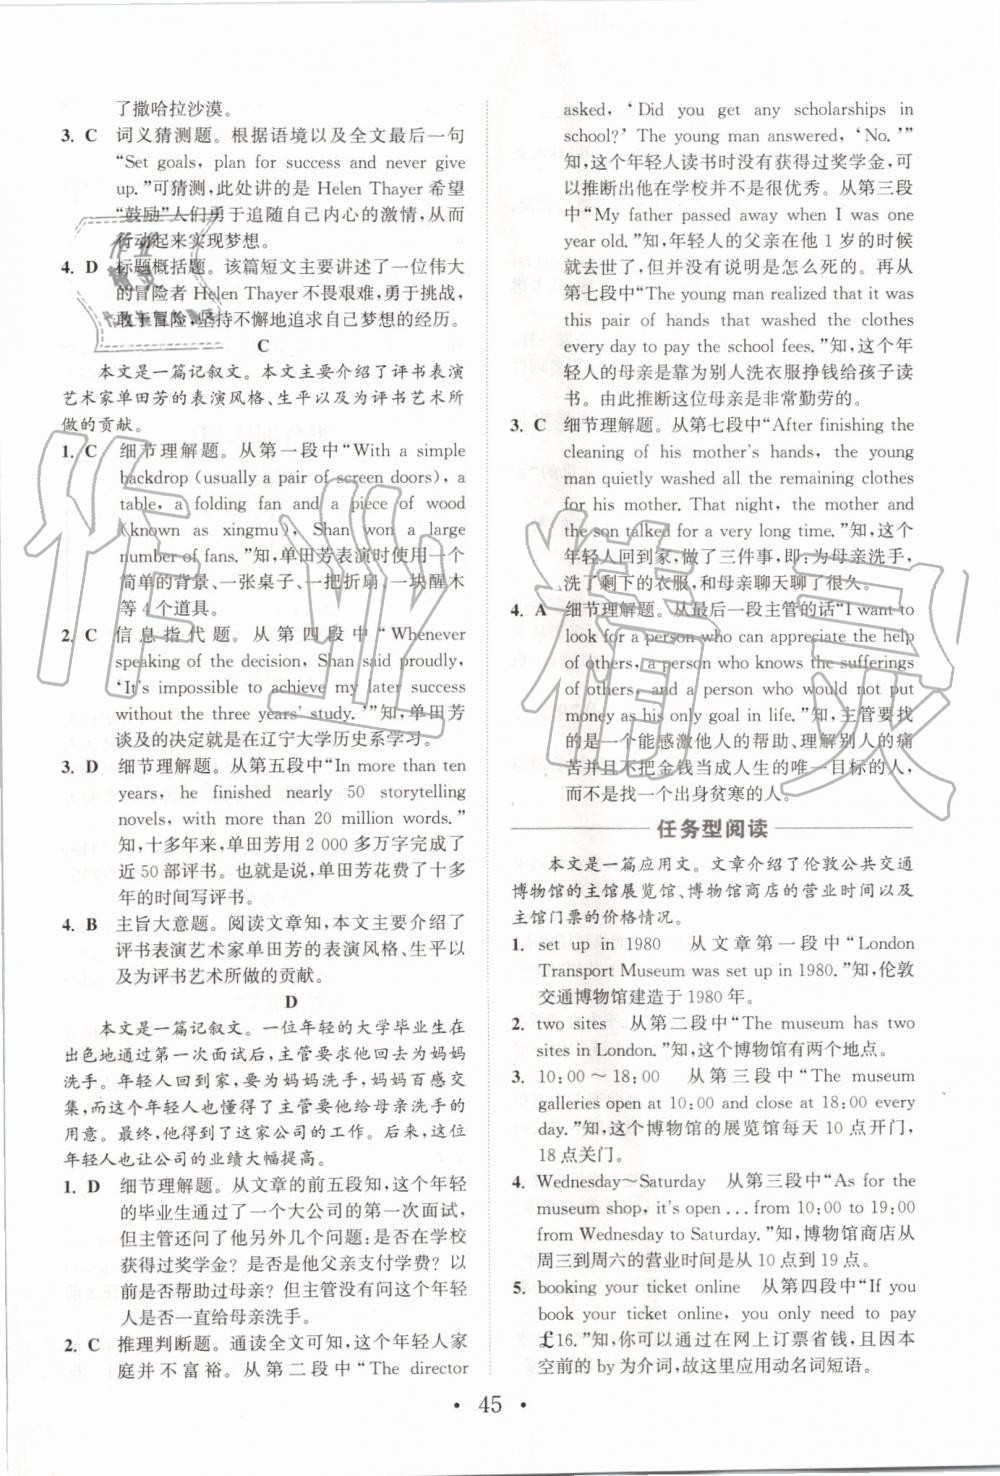 了撒哈拉沙漠。
3. C 词义猜测题。根据语境以及全文最后一句
“Set goals, plan for success and never give
up.”可猜测,此处讲的是 Helen Thayer 希望
“鼓励”人们勇于追随自己内心的激情,从而
行动起来实现梦想。
4. D 标题概括题。该篇短文主要讲述了一位伟大
的冒险者 Helen Thayer 不畏艰难,勇于挑战,
敢于冒险,坚持不懈地追求自己梦想的经历。
C
本文是一篇记叙文。本文主要介绍了评书表演
艺术家单田芳的表演风格、生平以及为评书艺术所
做的贡献。
1. C 细节理解题。从第一段中“With a simple
backdrop (usually a pair of screen doors), a
table, a folding fan and a piece of wood
(known as xingmu), Shan won a large
number of fans.”知,单田芳表演时使用一个
简单的背景、一张桌子、一把折扇、一块醒木
等 4 个道具。
2. C 信息指代题。从第四段中“Whenever
speaking of the decision, Shan said proudly,
‘It's impossible to achieve my later success
without the three years' study.’”知,单田芳
谈及的决定就是在辽宁大学历史系学习。
3. D 细节理解题。从第五段中“In more than ten
years, he finished nearly 50 storytelling
novels, with more than 20 million words.”
知,十多年来,单田芳用 2 000 多万字完成了
近 50 部评书。也就是说,单田芳花费了十多
年的时间写评书。
4. B 主旨大意题。阅读文章知,本文主要介绍了
评书表演艺术家单田芳的表演风格、生平以
及为评书艺术所做的贡献。
D
本文是一篇记叙文。一位年轻的大学毕业生在
出色地通过第一次面试后,主管要求他回去为妈妈
洗手。年轻人回到家,要为妈妈洗手,妈妈百感交
集,而这个年轻人也懂得了主管要他给母亲洗手的
用意。最终,他得到了这家公司的工作。后来,这位
年轻人也让公司的业绩大幅提高。
1. D 细节理解题。从文章的前五段知,这个年轻
的毕业生通过了一个大公司的第一次面试,
但主管还问了他另外几个问题:是否在学校
获得过奖学金?是否是他父亲支付学费?以
前是否帮助过母亲?但主管没有问这个年轻
人是否一直给母亲洗手。
2. C 推理判断题。通读全文可知,这个年轻人家
庭并不富裕。从第二段中“The director
asked, ‘Did you get any scholarships in
school?’ The young man answered, ‘No.’”
知,这个年轻人读书时没有获得过奖学金,可
以推断出他在学校并不是很优秀。从第三段
中“My father passed away when I was one
year old.”知,年轻人的父亲在他 1 岁的时候
就去世了,但并没有说明是怎么死的。再从
第七段中“The young man realized that it was
this pair of hands that washed the clothes
every day to pay the school fees.”知,这个年
轻人的母亲是靠为别人洗衣服挣钱给孩子读
书。由此推断这位母亲是非常勤劳的。
3. C 细节理解题。从第七段中“After finishing the
cleaning of his mother's hands, the young
man quietly washed all the remaining clothes
for his mother. That night, the mother and
the son talked for a very long time.”知,这个
年轻人回到家,做了三件事,即:为母亲洗手,
洗了剩下的衣服,和母亲聊天聊了很久。
4. A 细节理解题。从最后一段主管的话“I want to
look for a person who can appreciate the help
of others, a person who knows the sufferings
of others, and a person who would not put
money as his only goal in life.”知,主管要找
的是一个能感激他人的帮助、理解别人的痛
苦并且不把金钱当成人生的唯一目标的人,
而不是找一个出身贫寒的人。
任务型阅读
本文是一篇应用文。文章介绍了伦敦公共交通
博物馆的主馆展览馆、博物馆商店的营业时间以及
主馆门票的价格情况。
1. set up in 1980 从文章第一段中“London
Transport Museum was set up in 1980.”知,伦敦
交通博物馆建造于 1980 年。
2. two sites 从第二段中“The museum has two
sites in London.”知,这个博物馆有两个地点。
3. 10:00～18:00 从第三段中“The museum
galleries open at 10:00 and close at 18:00 every
day.”知,这个博物馆的展览馆每天 10 点开门,
18 点关门。
4. Wednesday~Saturday 从第三段中“As for the
museum shop, it's open ... from 10:00 to 19:00
from Wednesday to Saturday.”知,博物馆商店从
周三到周六的营业时间是从 10 点到 19 点。
5. booking your ticket online 从第四段中“If you
book your ticket online, you only need to pay
£16.”知,你可以通过在网上订票省钱,且因本
空前的 by 为介词,故这里应用动名词短语。
· 45 ·
作业精灵